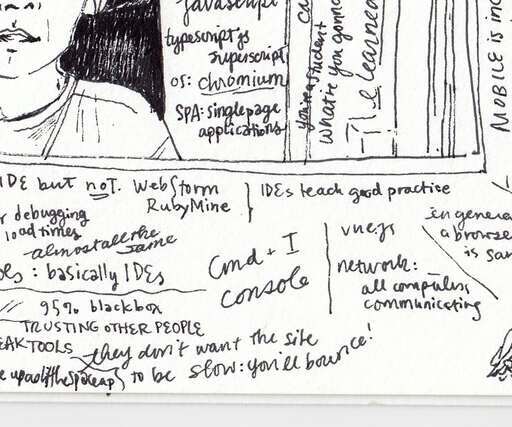 javascript
typescript js
superscript
OS: chromium
SPA: single page
applications
you're a student
what're you gonna
The learned
MOBILE is
IDE but not. WebStorm
RubyMine
IDEs teach good practice
debugging
load times
almost all the
same
: basically IDEs
Cmd + I
console
vue.js
network:
all computers
communicating
in general
a browser
is
95% blackbox
TRUSTING OTHER PEOPLE
TOOLS
they don't want the site
to be slow: you'll bounce!